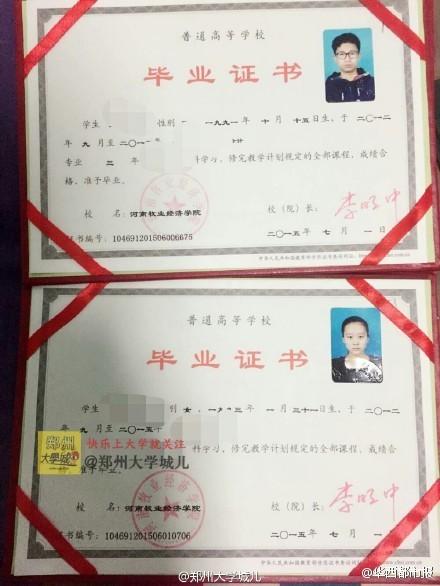 普通高等学校
毕业证书
学生 性别 一九九一年 十月 十五日生，于 二〇一二
年 九月至 二〇一
专业 三 年 科学习，修完教学计划规定的全部课程，成绩合
格，准予毕业。
校 名：河南牧业经济学院 校（院）长：
证书编号：104691201506006675 二〇一五年 七月 一日
中华人民共和国教育部学历证书查询网址：http://www.chsi.com.cn
普通高等学校
毕业证书
学生 别 女，一九 三年 一月 三十一日生，于 二〇一二
年 九月至 二〇一五年
科学习，修完教学计划规定的全部课程，成绩
合格，准予毕业。
郑州
大学城
快乐上大学就关注
@郑州大学城儿
校 名：河南牧业经济学院 校（院）长：
证书编号：104691201506010706 二〇一五年 七月 一
@郑州大学城儿
@华西都市报